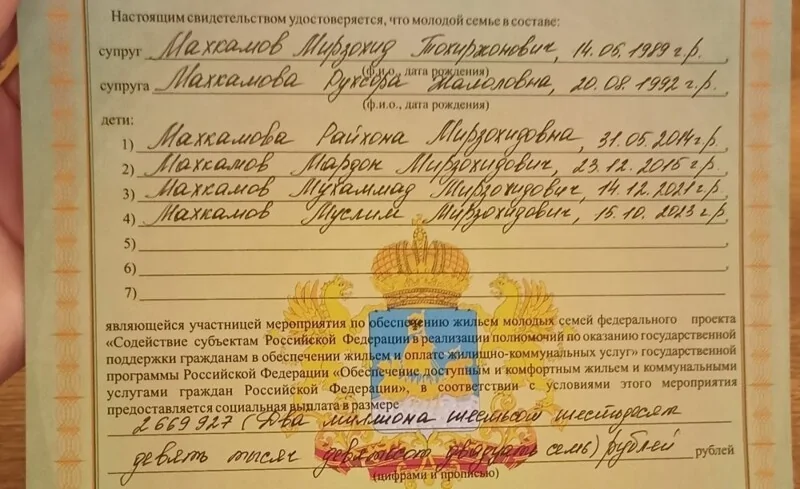 Настоящим свидетельством удостоверяется, что молодой семье в составе:
супруг Махкамов Мирзохид Тохиржонович, 14.05.1989 г.р.
(ф.и.о., дата рождения)
супруга Махкамова Рухсора Жалоловна, 20.08.1992 г.р.
(ф.и.о., дата рождения)
дети:
1) Махкамова Райхона Мирзохидовна, 31.05.2014 г.р.,
2) Махкамов Мардон Мирзохидович, 23.12.2015 г.р.,
3) Махкамов Мухаммад Мирзохидович, 14.12.2021 г.р.,
4) Махкамов Муслим Мирзохидович, 15.10.2023 г.р.,
5)
6)
7)
являющейся участницей мероприятия по обеспечению жильем молодых семей федерального проекта
«Содействие субъектам Российской Федерации в реализации полномочий по оказанию государственной
поддержки гражданам в обеспечении жильем и оплате жилищно-коммунальных услуг» государственной
программы Российской Федерации «Обеспечение доступным и комфортным жильем и коммунальными
услугами граждан Российской Федерации», в соответствии с условиями этого мероприятия
предоставляется социальная выплата в размере
2 669 927 (Два миллиона шестьсот шестьдесят
девять тысяч девятьсот двадцать семь) рублей рублей
(цифрами и прописью)